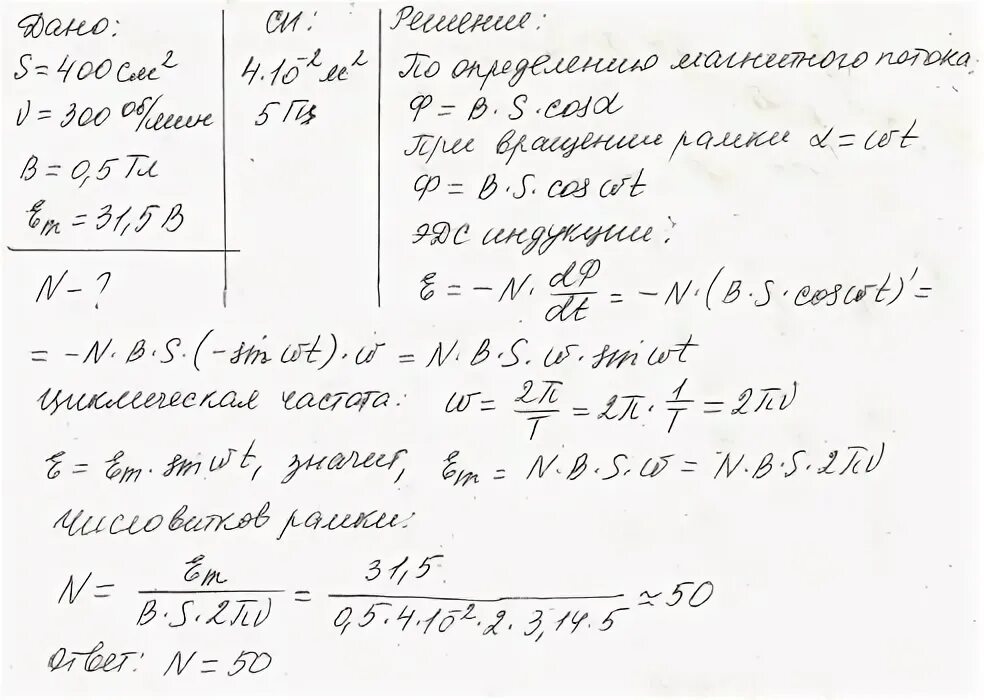 Дано:
S = 400 см²
ν = 300 об/мин
B = 0,5 Тл
Ɛm = 31,5 В
N - ?
СИ:
4·10⁻² м²
5 Гц
Решение:
По определению магнитного потока:
Ф = B·S·cosα
При вращении рамки α = ωt
Ф = B·S·cos ωt
ЭДС индукции:
Ɛ = -N· dФ/dt = -N·(B·S·cosωt)' =
= -N·B·S·(-sin ωt)·ω = N·B·S·ω·sin ωt
Циклическая частота: ω = 2π/T = 2π· 1/T = 2πν
Ɛ = Ɛm·sin ωt, значит, Ɛm = N·B·S·ω = N·B·S·2πν
Число витков рамки:
N = Ɛm/(B·S·2πν) = 31,5/(0,5·4·10⁻²·2·3,14·5) ≈ 50
Ответ: N = 50